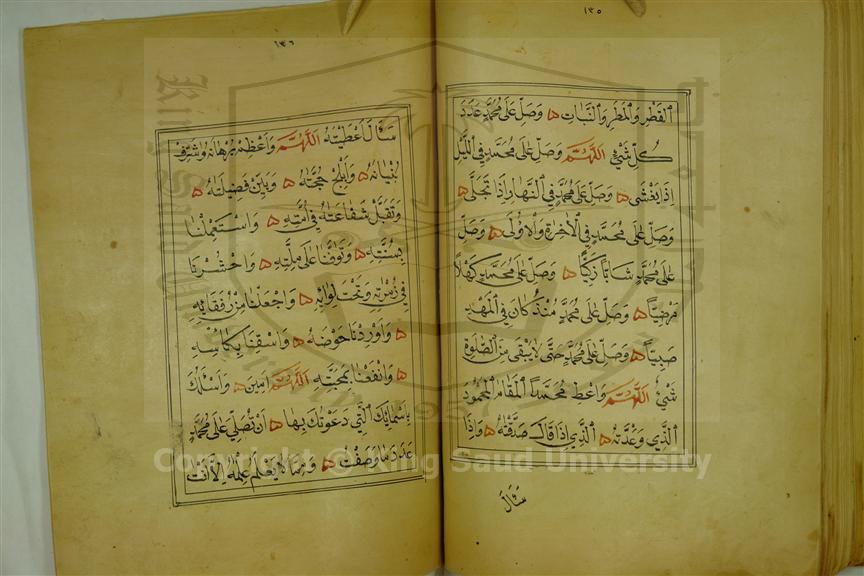 ١٣٥
ٱلقَطْرِ وَٱلْمَطَرِ وَٱلنَّبَاتِ ۞ وَصَلِّ عَلَى مُحَمَّدٍ عَدَدَ
كُلِّ شَيْءٍ اَللّٰهُمَّ وَصَلِّ عَلَى مُحَمَّدٍ فِي اللَّيْلِ
اِذَا يَغْشَى ۞ وَصَلِّ عَلَى مُحَمَّدٍ فِي النَّهَارِ اِذَا تَجَلَّى ۞
وَصَلِّ عَلَى مُحَمَّدٍ فِي الْاٰخِرَةِ وَالْاُولَى ۞ وَصَلِّ
عَلَى مُحَمَّدٍ شَابًّا زَكِيًّا ۞ وَصَلِّ عَلَى مُحَمَّدٍ كَهْلًا
مَرْضِيًّا ۞ وَصَلِّ عَلَى مُحَمَّدٍ مُنْذُ كَانَ فِي الْمَهْدِ
صَبِيًّا ۞ وَصَلِّ عَلَى مُحَمَّدٍ حَتَّى لَا يَبْقَى مِنَ الصَّلٰوةِ
شَيْءٌ اَللّٰهُمَّ وَاَعْطِ مُحَمَّدًا الْمَقَامَ الْمَحْمُودَ
الَّذِي وَعَدْتَهُ ۞ الَّذِي اِذَا قَالَ صَدَّقْتَهُ ۞ وَاِذَا
سَأَلَ
١٣٦
سَأَلَ اَعْطَيْتَهُ اَللّٰهُمَّ وَاَعْظِمْ بُرْهَانَهُ وَشَرِّفْ
بُنْيَانَهُ ۞ وَاَبْلِجْ حُجَّتَهُ ۞ وَبَيِّنْ فَضِيلَتَهُ ۞
وَتَقَبَّلْ شَفَاعَتَهُ فِي اُمَّتِهِ ۞ وَاسْتَعْمِلْنَا
بِسُنَّتِهِ ۞ وَتَوَفَّنَا عَلَى مِلَّتِهِ ۞ وَاحْشُرْنَا
فِي زُمْرَتِهِ وَتَحْتَ لِوَائِهِ ۞ وَاجْعَلْنَا مِنْ رُفَقَائِهِ
۞ وَاَوْرِدْنَا حَوْضَهُ ۞ وَاسْقِنَا بِكَأْسِهِ
۞ وَانْفَعْنَا بِمَحَبَّتِهِ اَللّٰهُمَّ اٰمِينَ ۞ وَاَسْئَلُكَ
بِاَسْمَائِكَ الَّتِي دَعَوْتُكَ بِهَا ۞ اَنْ تُصَلِّيَ عَلَى مُحَمَّدٍ
عَدَدَ مَا وَصَفْتُ ۞ وَمِمَّا لَا يَعْلَمُ عِلْمَهُ اِلَّا اَنْتَ
Copyright © King Saud University